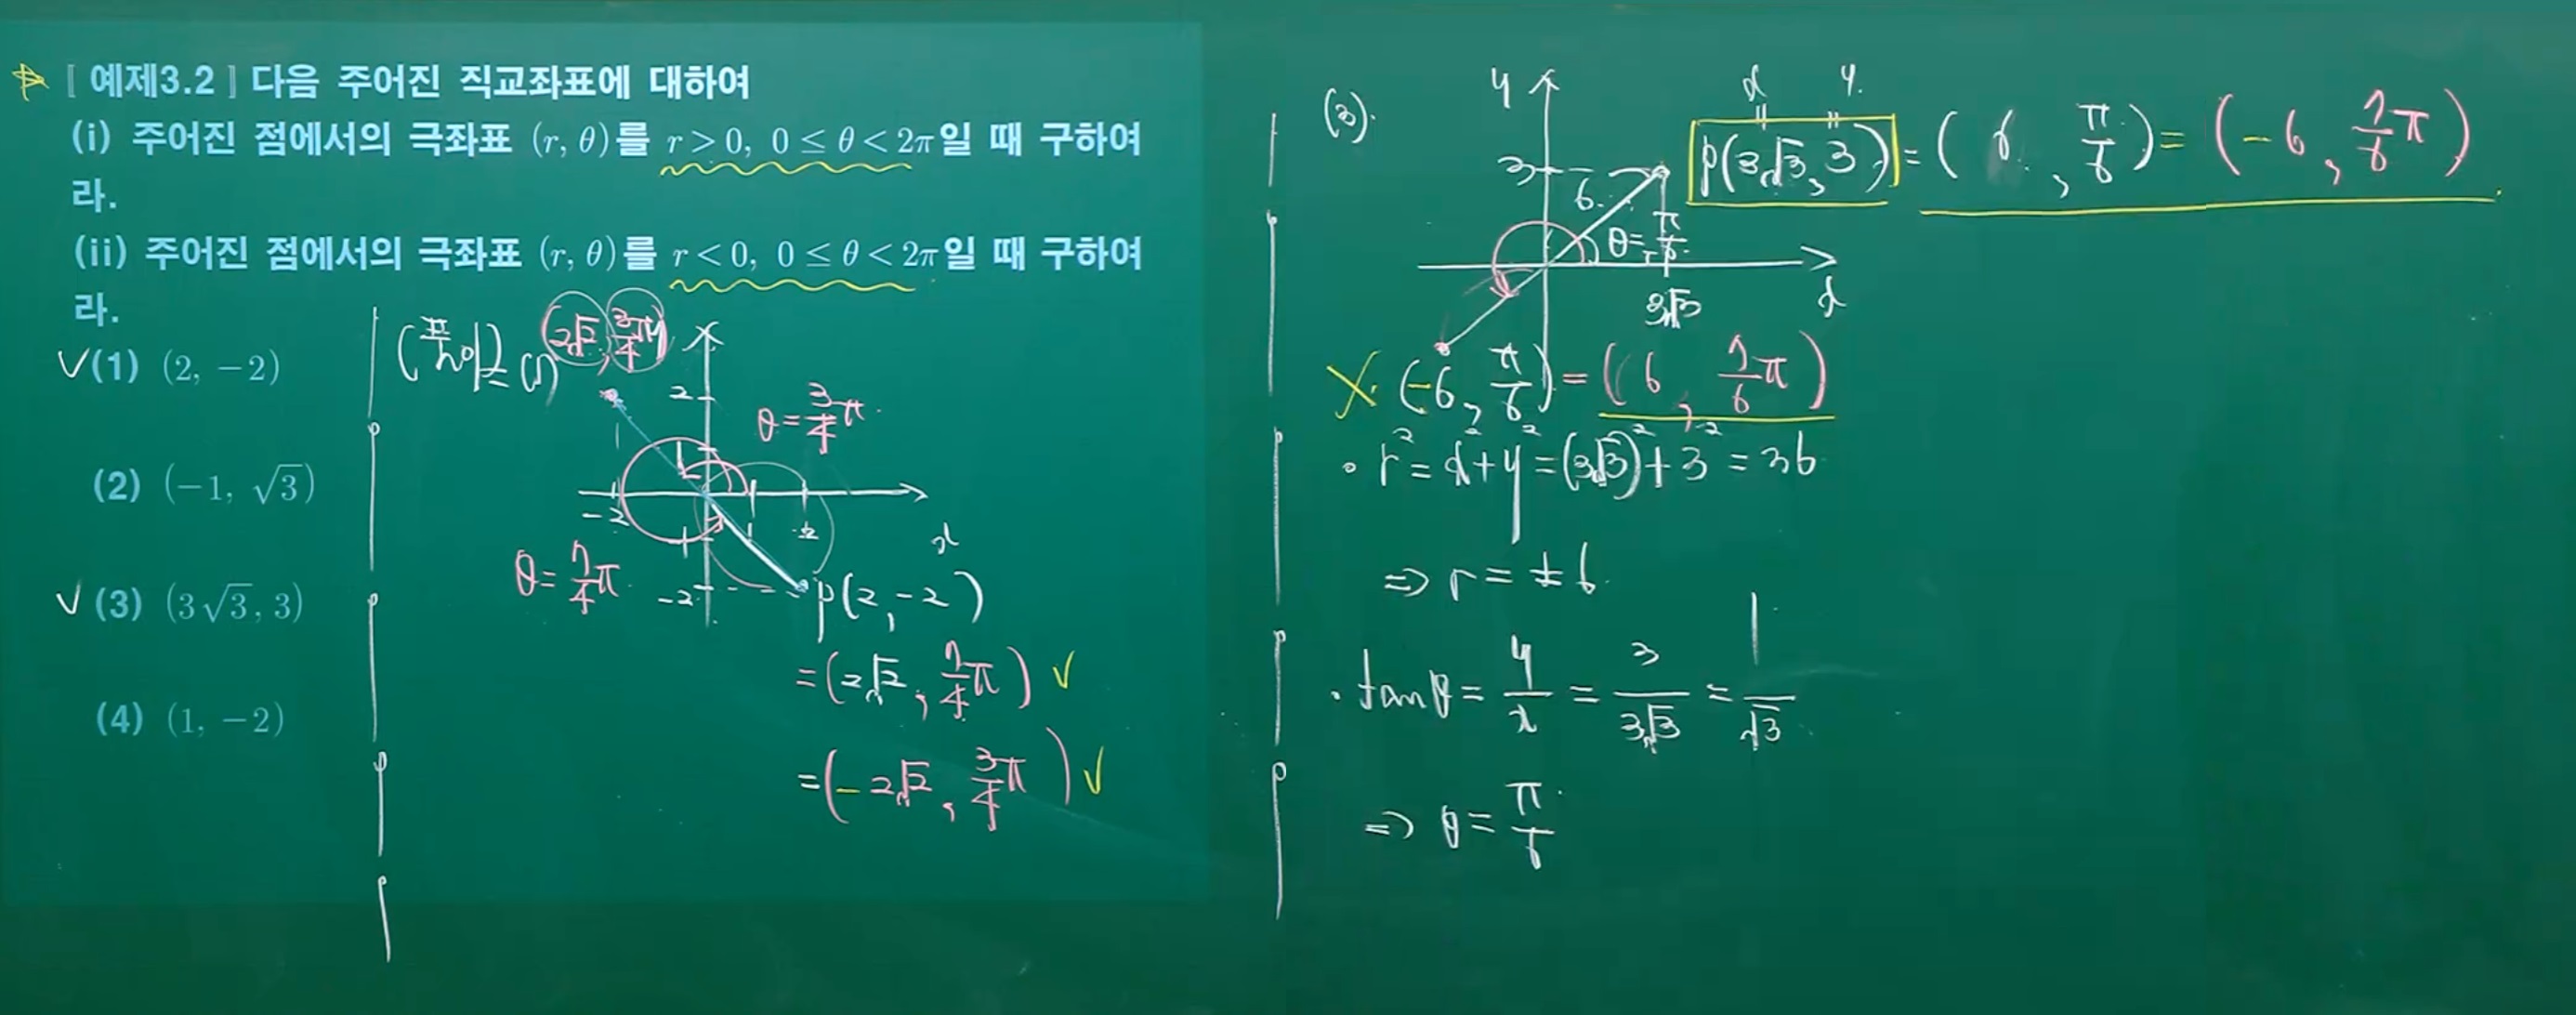 [예제3.2] 다음 주어진 직교좌표에 대하여
(i) 주어진 점에서의 극좌표 (r, θ)를 r > 0, 0 ≤ θ < 2π일 때 구하여
라.
(ii) 주어진 점에서의 극좌표 (r, θ)를 r < 0, 0 ≤ θ < 2π일 때 구하여
라.
✓(1) (2, −2)
(2) (−1, √3)
✓(3) (3√3, 3)
(4) (1, −2)
(풀이) (1)
(2√2, 3/4 π)
y
2
θ = 3/4 π
-2
2
x
θ = 7/4 π
-2
P(2, -2)
= (2√2, 7/4 π) ✓
= (-2√2, 3/4 π) ✓
(3).
y
x
y
P(3√3, 3) = (6, π/6) = (-6, 7/6 π)
3
6
θ = π/6
3√3
x
X (-6, π/6) = (6, 7/6 π)
• r² = x² + y² = (3√3)² + 3² = 36
⇒ r = ±6
• tanθ = y/x = 3/3√3 = 1/√3
⇒ θ = π/6